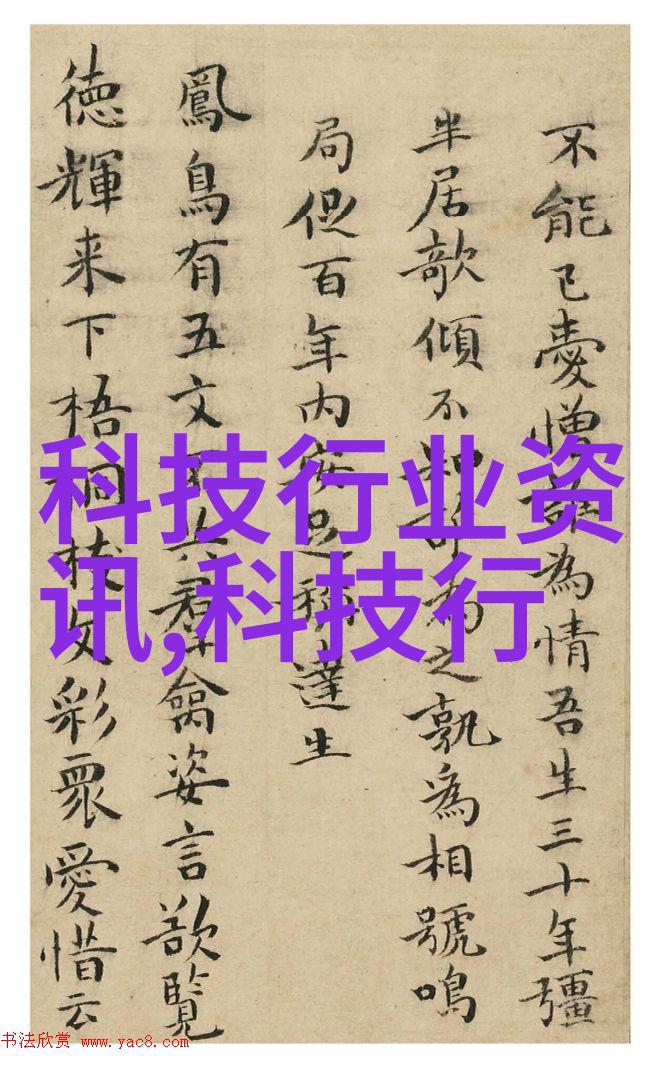 不能已憂憎諒為情吾生三十年彊
半居欹傾不知所為之孰為相號鳴
局促百年内安足稱達生
鳳鳥有五文不共羣禽姿言欲覽
徳輝来下梧桐枝文彩衆愛惜云
科技行业资
讯,科技行
书法欣赏 www.yac8.com